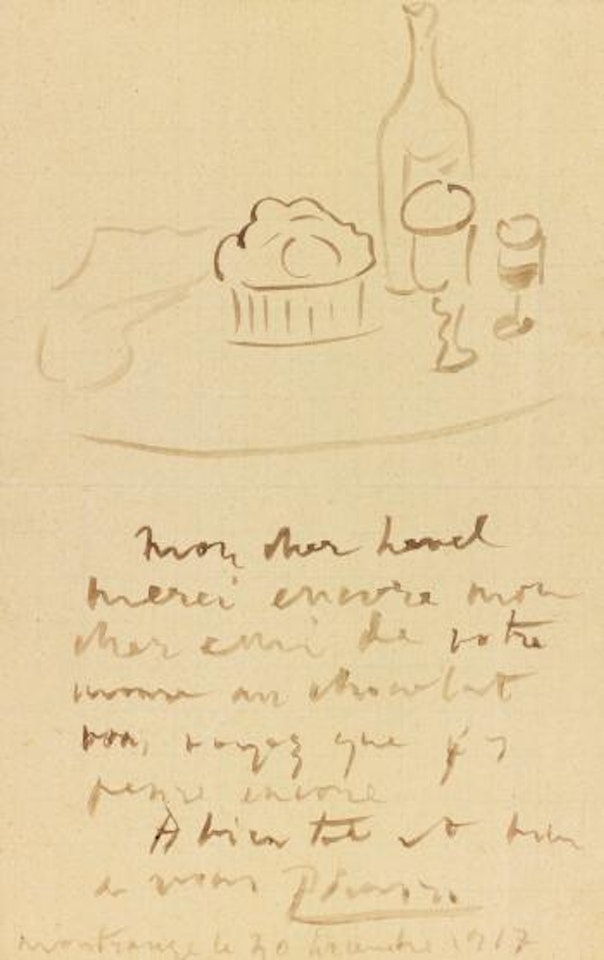 mon cher Level
merci encore mon
cher ami de votre
mousse au chocolat
vous voyez que j'y
pense encore
A bientôt et bien
a vous Picasso
Montrouge le 30 decembre 1917